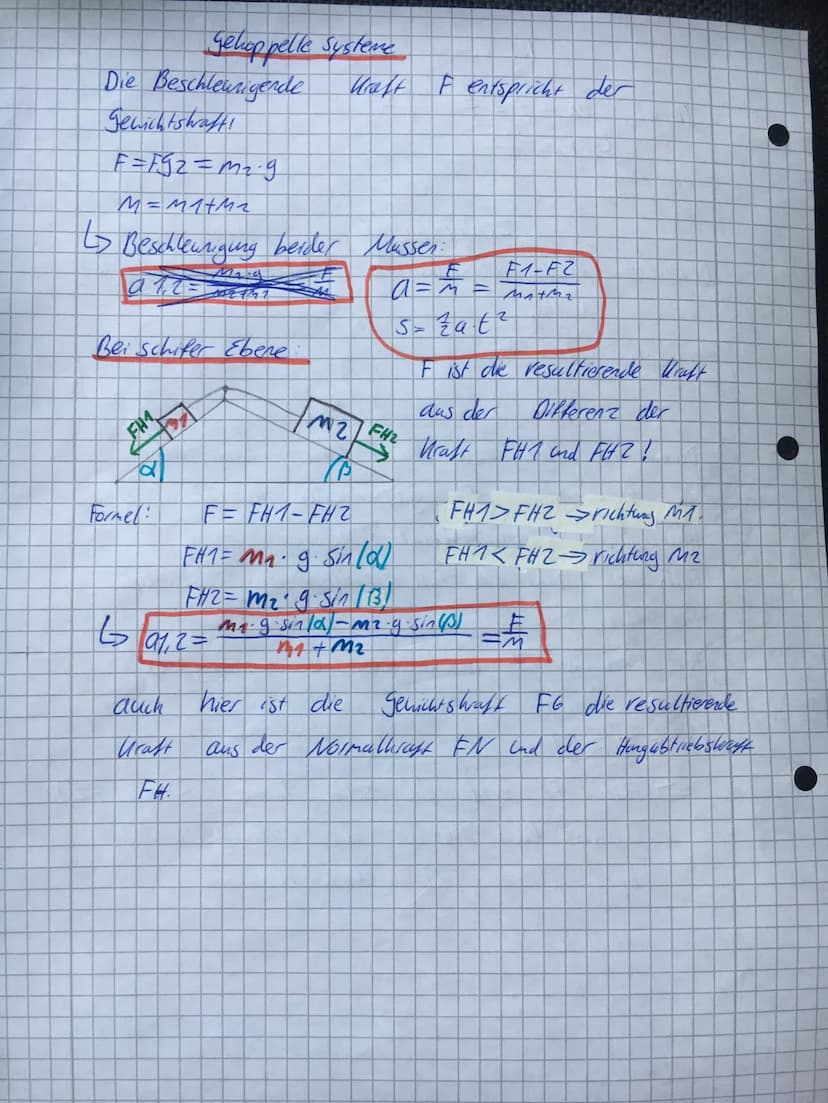 Gekoppelte Systeme
Die Beschleunigende Kraft F entspricht der
Gewichtskraft!
F = Fg2 = m2 · g
M = m1+m2
↳ Beschleunigung beider Massen:
a1,2 = m2·g / m2+m1 = F/M
a = F/M = F1-F2 / m1+m2
s = 1/2 a · t²
Bei schifer Ebene:
F ist die resultierende Kraft
aus der Differenz der
Kraft FH1 und FH2!
FH1 m1 m2 FH2
α β
Formel: F = FH1 - FH2
FH1 > FH2 → richtung M1.
FH1 = m1 · g · sin(α)
FH1 < FH2 → richtung M2
FH2 = m2 · g · sin(β)
↳ a1,2 = m1·g·sin(α) - m2·g·sin(β) / m1 + m2 = F/M
auch hier ist die Gewichtskraft FG die resultierende
Kraft aus der Normalkraft FN und der Hangabtriebskraft
FH.